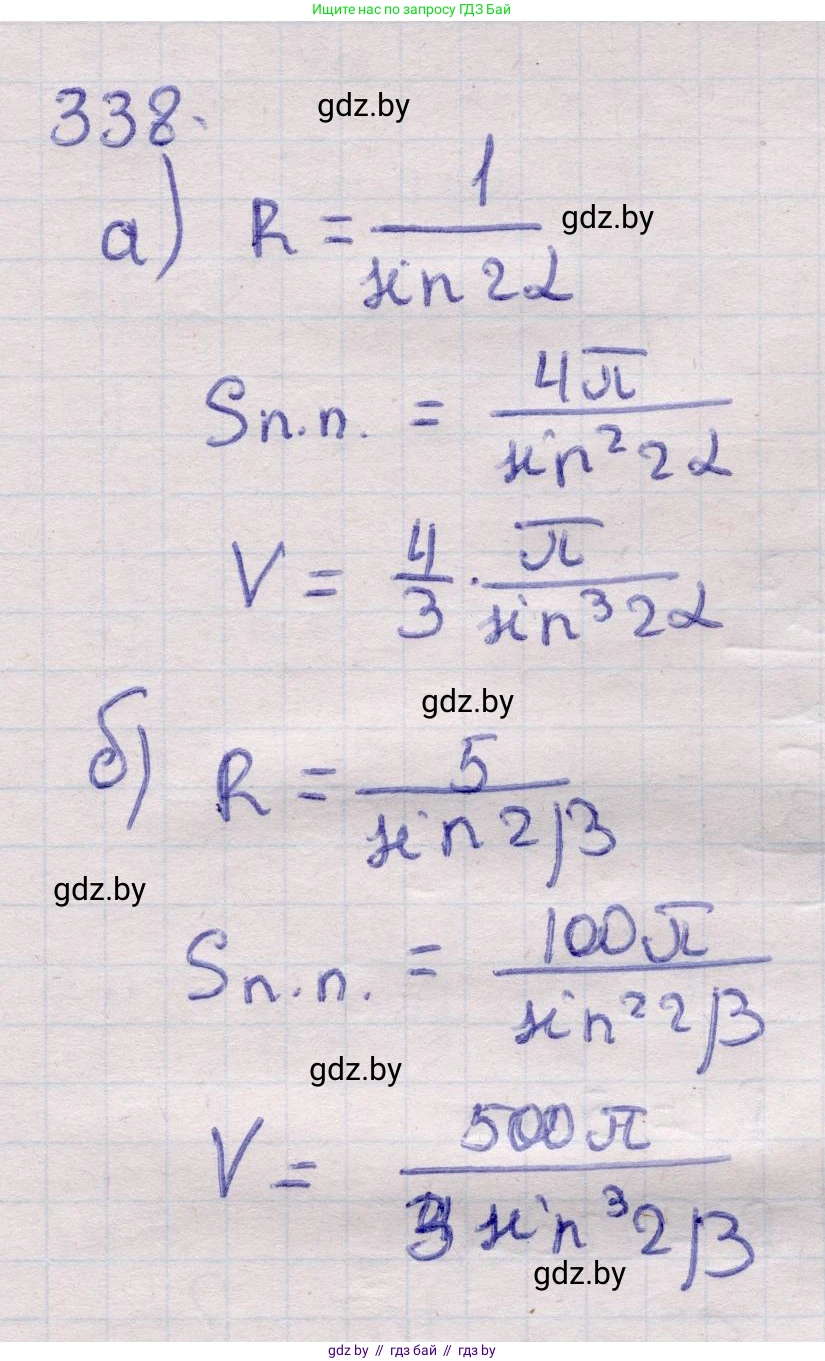 Ищите нас по запросу ГДЗ Бай
338.
gdz.by
а) R = 1 / sin 2α
gdz.by
Sп.п. = 4π / sin² 2α
V = 4/3 · π / sin³ 2α
gdz.by
б) R = 5 / sin 2β
gdz.by
Sп.п. = 100π / sin² 2β
gdz.by
V = 500π / 3 sin³ 2β
gdz.by
gdz.by // гдз бай // гдз by